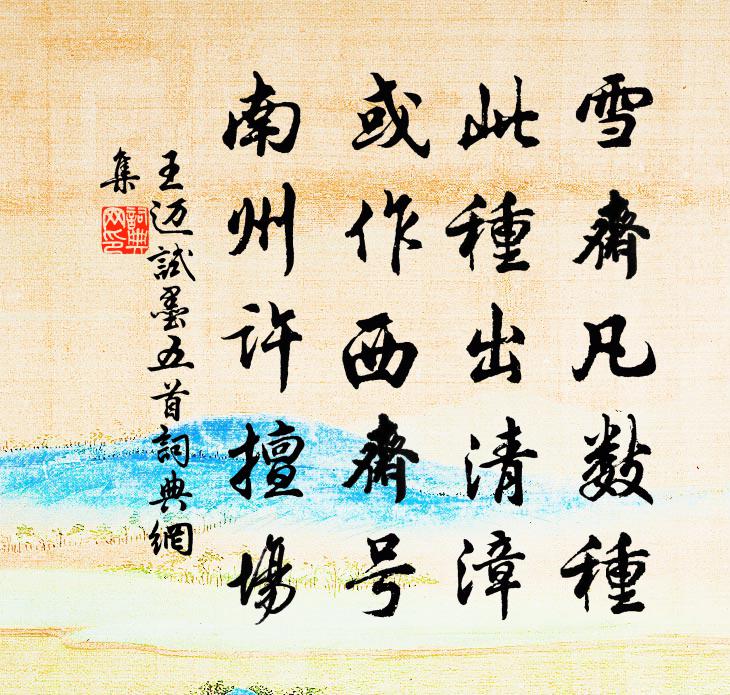 雪齋凡数種
此種出清漳
或作西齋号
南州许擅場
王迈試墨五首詞典網
集
詞典
网印